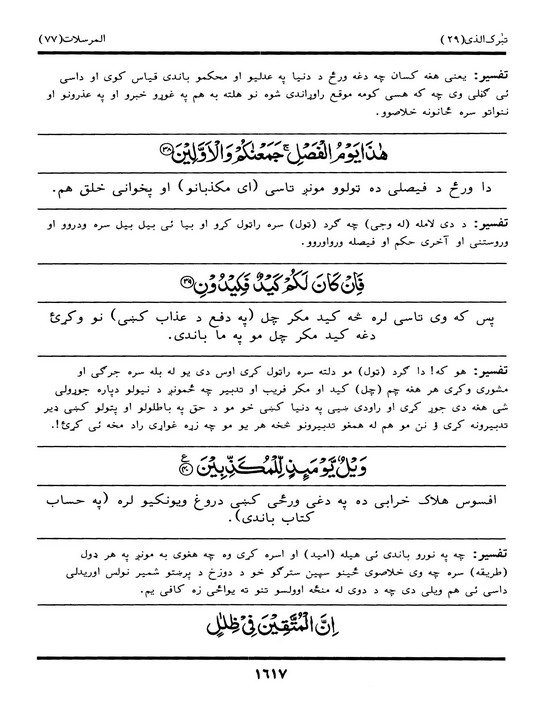 تبٰرك الذى(۲۹) المرسلات(۷۷)
تفسير: يعنى هغه كسان چه دغه ورځ د دنيا په عدليو او محكمو باندى قياس كوى او داسى
ئى ګڼلى وى چه كه هسى كومه موقع راوړاندى شوه نو هلته به هم په غوړو خبرو او په عذرونو او
ننواتو سره ځانونه خلاصوو.
هٰذَا يَوْمُ الْفَصْلِ ۚ جَمَعْنٰكُمْ وَالْاَوَّلِيْنَ ﴿۳۸﴾
دا ورځ د فيصلى ده ټولوو مونږ تاسى (اى مكذبانو) او پخوانى خلق هم.
تفسير: د دى لامله (له وجى) چه ګرد (ټول) سره راټول كړو او بيا ئى بيل بيل سره ودروو او
وروستنى او آخرى حكم او فيصله ورواوروو.
فَاِنْ كَانَ لَكُمْ كَيْدٌ فَكِيْدُوْنِ ﴿۳۹﴾
پس كه وى تاسى لره څه كيد مكر چل (په دفع د عذاب كښى) نو وكړئ
دغه كيد مكر چل مو په ما باندى.
تفسير: هو كه! دا ګرد (ټول) مو دلته سره راټول كړى اوس دى يو له بله سره جرګى او
مشورى وكړى هر هغه چم (چل) كيد او مكر فريب او تدبير چه ځمونږ د نيولو دپاره جوړولى
شى هغه دى جوړ كړى او راودى ښيى په دنيا كښى خو مو د حق په باطلولو او پټولو كښى ډير
تدبيرونه كړى ؤ نن مو هم له همغو تدبيرونو څخه هر يو مو چه زړه غواړى راد مخه ئى كړئ!.
وَيْلٌ يَّوْمَئِذٍ لِّلْمُكَذِّبِيْنَ ﴿۴۰﴾ ع
افسوس هلاك خرابى ده په دغى ورځى كښى دروغ ويونكيو لره (په حساب
كتاب باندى).
تفسير: چه په نورو باندى ئى هيله (اميد) او اسره كړى وه چه هغوى به مونږ په هر ډول
(طريقه) سره چه وى خلاصوى ځينو سپين سترګو خو د دوزخ د پرښتو شمير نولس اوريدلى
داسى ئى هم ويلى دى چه د دوى له منځه اوولسو تنو ته يواځى زه كافى يم.
اِنَّ الْمُتَّقِيْنَ فِىْ ظِلٰلٍ
۱۶۱۷